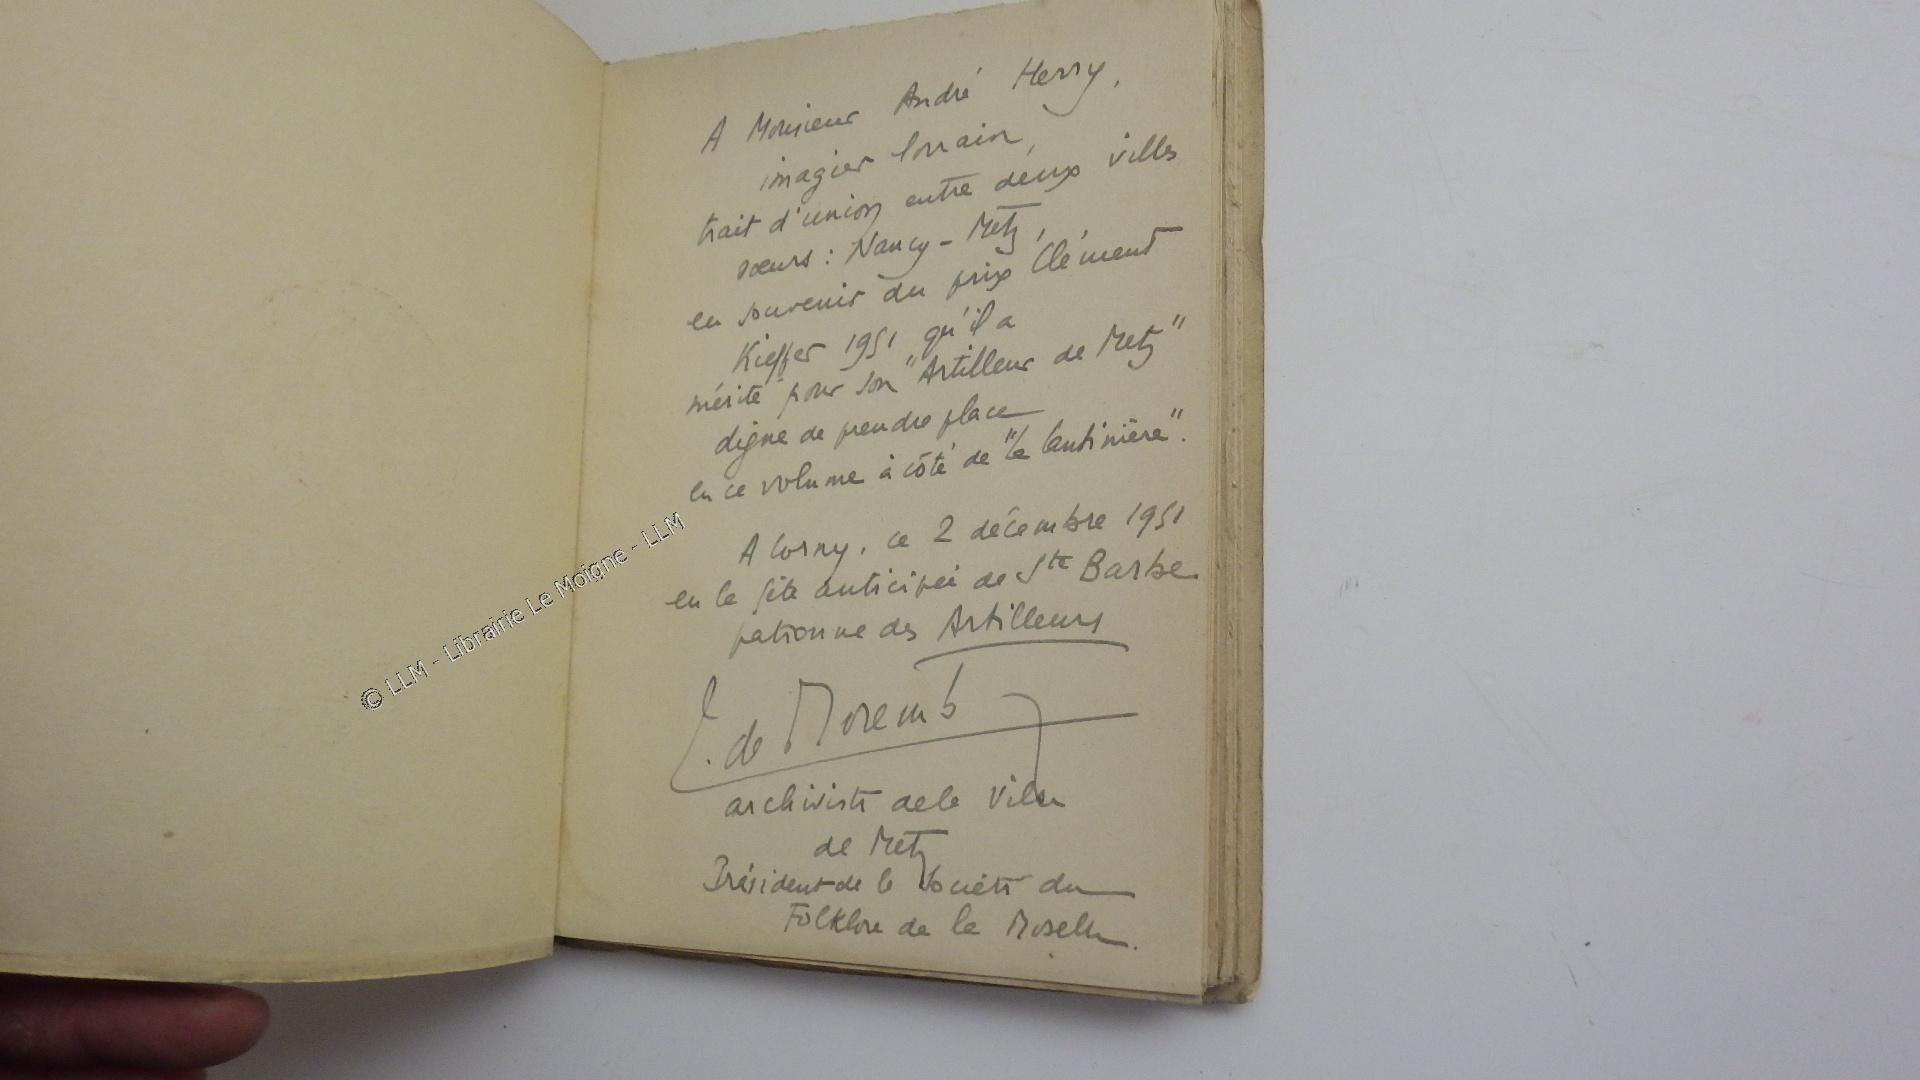 A Monsieur André Herry,
imagier lorrain,
trait d'union entre deux villes
sœurs : Nancy - Metz,
en souvenir du prix Clément
Kieffer 1951 qu'il a
mérité pour son "Artilleur de Metz"
digne de prendre place
en ce volume à côté de "la Cantinière".
A Corny, ce 2 décembre 1951
en la fête anticipée de Ste Barbe
patronne des Artilleurs
de Moremb
archiviste de la Ville
de Metz
Président de la Société du
Folklore de la Moselle.
© LLM - Librairie Le Moigne - LLM